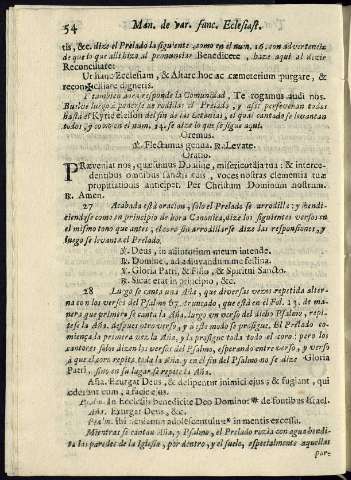 54 Man. de var. func. Eclesiast.
tis, &c. dize el Prelado lo siguiente, como en el num. 16. con advertencia
de que lo que alli hizo al pronunciar Benedicere, haze aqui al dizir
Reconciliare:
Ut hanc Ecclesiam, & Altare hoc ac cæmeterium purgare, &
recon✠ciliare digneris.
Y tambien aora responde la Comunidad, Te rogamus audi nos.
Buelve luego à ponerse de rodillas el Prelado, y assi perseveran todos
hasta el Kyrie eleison del fin de las Letanias, el qual cantado se levantan
todos, y como en el num. 24. se dize lo que se sigue aqui.
Oremus.
℣. Flectamus genua. ℟. Levate.
Oratio.
PRæveniat nos, quæsumus Domine, misericordia tua: & interce-
dentibus omnibus sanctis tuis, voces nostras clementia tuæ
propitiationis anticipet. Per Christum Dominum nostrum.
℟. Amen.
27 Acabada esta oracion, solo el Prelado se arrodilla; y hendi-
tiendose como en principio de hora Canonica, dize los siguientes versos en
el mismo tono que antes, el coro sin arrodillarse dize las responsiones, y
luego se levanta el Prelado.
℣. Deus, in adiutorium meum intende.
℟. Domine, ad adiuvandum me festina.
℣. Gloria Patri, & Filio, & Spiritui Sancto.
℟. Sicut erat in principio, &c.
28 Luego se canta una Aña, que diversas vezes repetida alter-
na con los versos del Psalmo 67. Annuado, que està en el Fol. 23. de mane-
ra que primero se canta la Aña. luego un verso del dicho Psalmo, repi-
tese la Aña. despues otro verso, y à este modo se prosigue. El Prelado co-
miença la primera vez la Aña. y la prosigue toda todo el coro: pero los
cantores solos dizen los versos del Psalmo, esperando entre verso, y verso
à que el coro repita toda la Aña. y en el fin del Psalmo no se dize Gloria
Patri, sino en su lugar se repite la Aña.
Aña. Exurgat Deus, & dissipentur inimici ejus; & fugiant, qui
oderunt eum, à facie ejus.
Psalm. In Ecclesiis benedicite Deo Domino: ✱ de fontibus Israel.
Aña. Exurgat Deus, &c.
Psalm. Ibi Benjamin adolescentulus: ✱ in mentis excessu.
Mientras se cantan Aña. y Psalmo, el Prelado rocia con agua bendi-
ta las paredes de la Iglesia, por dentro, y el suelo, especialmente aquellas
par-